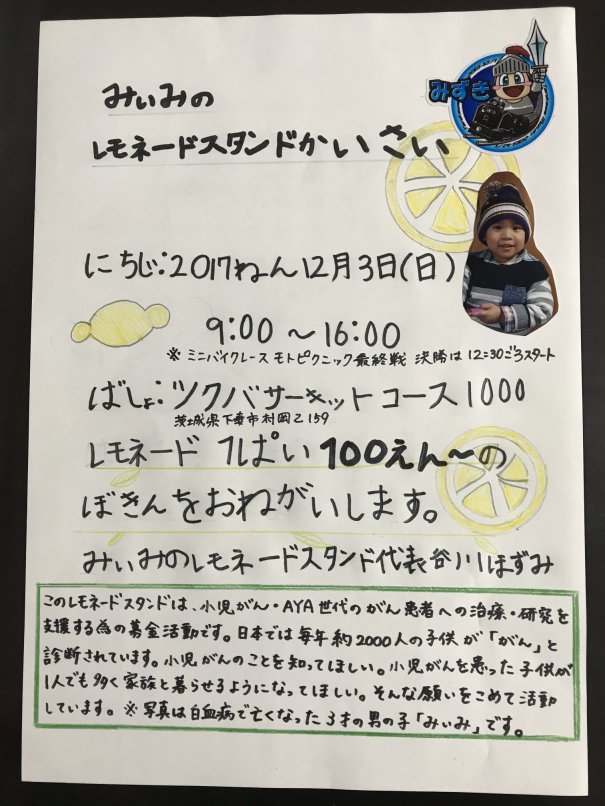 みずき
みぃみの
レモネードスタンドかいさい
にちじ:2017ねん12月3日(日)
9:00～16:00
※ミニバイクレース モトピクニック最終戦 決勝は12:30ごろスタート
ばしょ:ツクバサーキットコース1000
茨城県下妻市村岡乙159
レモネード 1ぱい 100えん～の
ぼきんをおねがいします。
みぃみのレモネードスタンド代表谷川ほずみ
このレモネードスタンドは、小児がん・AYA世代のがん患者への治療・研究を
支援する為の募金活動です。日本では毎年約2000人の子供が「がん」と
診断されています。小児がんのことを知ってほしい。小児がんを患った子供が
1人でも多く家族と暮らせるようになってほしい。そんな願いをこめて活動
しています。※写真は白血病で亡くなった3才の男の子「みぃみ」です。